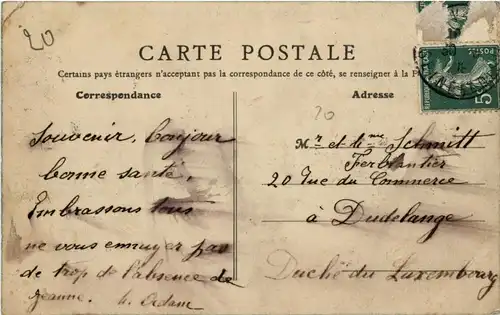 20
CARTE POSTALE
Certains pays étrangers n'acceptant pas la correspondance de ce côté, se renseigner à la
Correspondance
Adresse
20
Souvenir, bonjour
bonne santé,
Embrassons tous
ne vous ennuyer pas
de trop de l'absence de
Jeanne.
Mr et Mme Schmitt
Ferblantier
20 Rue du Commerce
à Dudelange
Duché du Luxembourg
POSTES
5